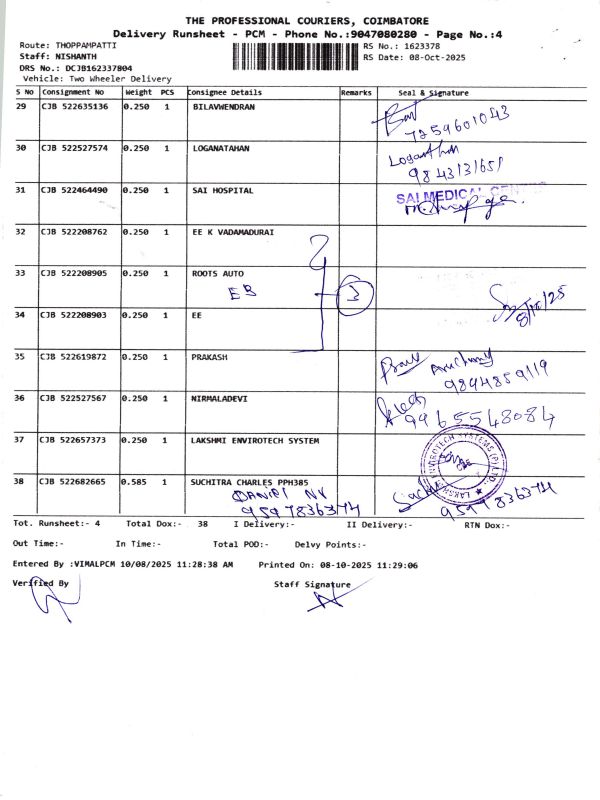 THE PROFESSIONAL COURIERS, COIMBATORE
Delivery Runsheet - PCM - Phone No.:9047080280 - Page No.:4
Route: THOPPAMPATTI RS No.: 1623378
Staff: NISHANTH RS Date: 08-Oct-2025
DRS No.: DCJB162337804
Vehicle: Two Wheeler Delivery
S No Consignment No Weight PCS Consignee Details Remarks Seal & Signature
29 CJB 522635136 0.250 1 BILAVWENDRAN
7259601043
30 CJB 522527574 0.250 1 LOGANATAHAN Loganathan
9843131651
31 CJB 522464490 0.250 1 SAI HOSPITAL SAI MEDICAL
32 CJB 522208762 0.250 1 EE K VADAMADURAI
33 CJB 522208905 0.250 1 ROOTS AUTO
EB 3 8/10/25
34 CJB 522208903 0.250 1 EE
35 CJB 522619872 0.250 1 PRAKASH
9894859119
36 CJB 522527567 0.250 1 NIRMALADEVI
9965548084
37 CJB 522657373 0.250 1 LAKSHMI ENVIROTECH SYSTEM LAKSHMI ENVIROTECH SYSTEMS (P) LTD.
38 CJB 522682665 0.585 1 SUCHITRA CHARLES PPH385
9597836374 9597836374
Tot. Runsheet:- 4 Total Dox:- 38 I Delivery:- II Delivery:- RTN Dox:-
Out Time:- In Time:- Total POD:- Delvy Points:-
Entered By :VIMALPCM 10/08/2025 11:28:38 AM Printed On: 08-10-2025 11:29:06
Verified By Staff Signature